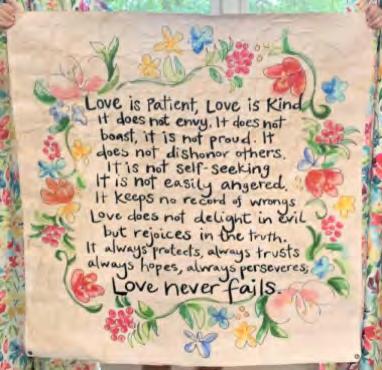 Love is Patient, Love is Kind
It does not envy, It does not
boast, it is not proud. It
does not dishonor others.
It is not self-seeking
It is not easily angered.
It keeps no record of wrongs
Love does not delight in evil
but rejoices in the truth.
It always protects, always trusts
always hopes, always perseveres;
Love never fails.